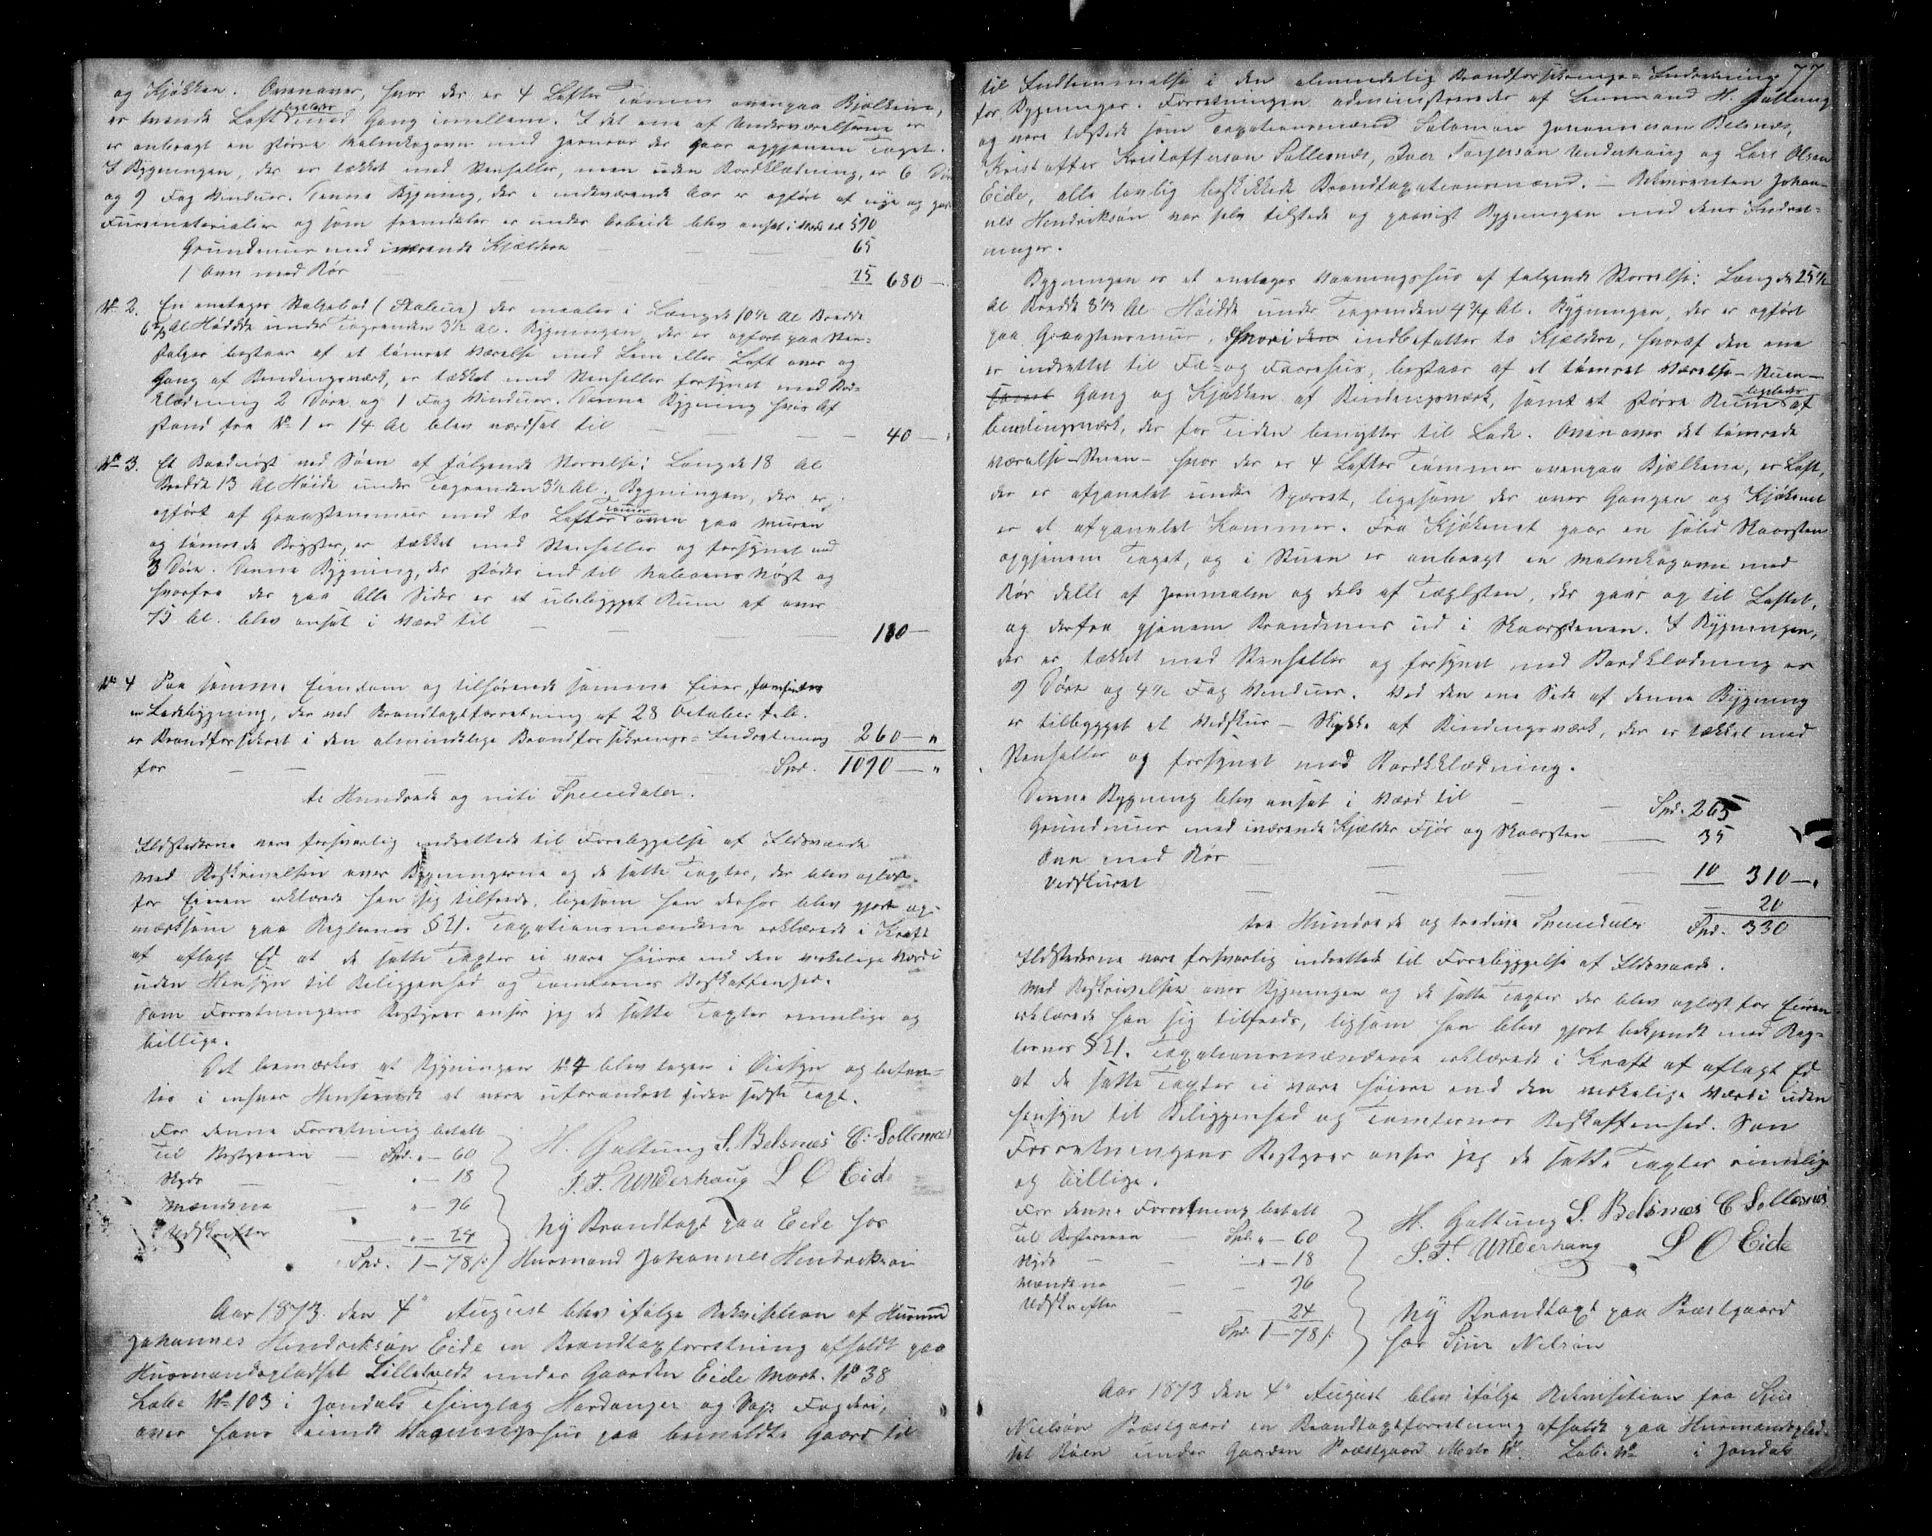 og Kjøkken. Ovenover, hvor der er 4 Lefter Tømmer ovenpaa Bjelkerne,
er tvende Loftsværelser med Gang imellem. I det ene af Underværelserne er
er anbragt en større Malmkogovn med Jernrør der gaar opgjenem Taget.
I Bygningen, der er tækket med Stenheller, men uden Bordklædning, er 6 Døre
og 9 Fag Vinduer. Denne Bygning, der i indeværende Aar er opført af nye og gode
Furrematerialier og som fremdeles er under Arbeide blev anset i Værd til 590
Grundmuur med iværende Kjældere 65
1 Ovn med Rør 25 680 -
No 2. En enetages Stolpebod (Stabuur) der maaler i Længde 10½ Al Bredde
6⅔ Al Høidde under Tagrenden 3½ Al. Bygningen, der er opført paa Sten-
stolper bestaar af et tømret Værelse med Lem eller Loft over og
Gang af Bindingsværk, er tækket med Stenheller forsynet med Bord-
klædning 2 Døre og 1 Fag Vinduer. Denne Bygning hvis Af
stand fra No 1 er 14 Al blev værdsat til 40 -
No 3. Et Baadnøst ved Søen af følgende Størrelse: Længde 18 Al
Bredde 13 Al Høide under Tagrenden 3½ Al. Bygningen, der er
opført af Graastensmuur med to Lefter Tømmer oven paa Muren
og tømrede Bryster, er tækket med Stenheller og forsynet med
3 Døre. Denne Bygning, der støder ind til Naboens Nøst og
hvorfra der paa Alle Sider er et ubebygget Rum af over
75 Al. blev anset i Værd til 110 -
No 4 Paa samme Eiendom og tilhørende samme Eier, forefindes
en Ladebygning, der ved Brandtaxtforretning af 28 October
er Brandforsikret i den almindelige Brandforsikrings-Indretning 260 - "
for Spd. 1090 - "
et Tusinde og niti Speciedaler.
Ildstederne vare forsvarlig indrettede til Forebyggelse af Ildsvaade
Med Beskrivelsen over Bygningerne og de satte Taxter, der blev oplæst
for Eieren erklærede han sig tilfreds, ligesom han derhos blev gjort op-
mærksom paa Reglernes § 21. Taxationsmændene erklærede i Kraft
af aflagt Ed at de satte Taxter ei vare høiere end den virkelige Værdi
uden Hensyn til Beliggenhed og Tomternes Beskaffenhed.
Som Forretningens Bestyrer anser jeg de satte Taxter rimelige og
billige.
Det bemærkes at Bygningen No 4 blev tagen i Øiesyn og befun-
des i enhver Henseende at være uforandret siden sidste Taxt.
For denne Forretning betalt
Til Bestyreren Spd. " - 60
Skyds " - 18
Mændene " - 76
Udskrifter " - 24
Spd. 1 - 78 ß
H. Galtung S. Belsnæs C. Sollesnæs
I. T. Underhaug L O Eide
Ny Brandtaxt paa Eide hos
Huusmand Johannes Hendriksøn
Aar 1873 den 4de August blev ifølge Rekvisition af Huusmand
Johannes Hendriksøn Eide en Brandtaxtforretning afholdt paa
Huusmandspladset Lilletvedt under Gaarden Eide Matr. No 38
Løbe No 103 i Jondals Thinglag Hardanger og Søndhordlands Fogderi,
over hans eiende Vaaningshuus paa bemeldte Gaard til
77
til Indlemmelse i den almindelig Brandforsikrings-Indretning
for Bygninger. Forretningen administreredes af Lensmand H. Galtung
og vare tilstede som Taxationsmænd Salamon Johannesson Belsnæs,
Kristoffer Kristofferson Sollesnæs, Iver Torjerson Underhaug og Lars Olsen
Eide, alle lovlig beskikkede Brandtaxationsmænd. - Rekvirenten Johan-
nes Hendriksøn var selv tilstede og paavist Bygningen med dens Indret-
ninger.
Bygningen er et enetages Vaaningshus af følgende Størrelse: Længde 25½
Al Bredde 8⅓ Al Høidde under Tagrenden 4¾ Al. Bygningen, der er opført
paa Graastensmuur, hvori indbefattes to Kjældere, hvoraf den ene
er indrettet til Fæ- og Faarehus, bestaar af et tømret Værelse - Stuen -
Gang og Kjøkken af Bindingsværk, samt et større Rum ligeledes af
bindingsværk, der for Tiden benyttes til Lade. Ovenover det tømrede
Værelse - Stuen - hvor der er 4 Lefter Tømmer ovenpaa Bjelkerne, er Loft,
der er afpanelet under Sperret, ligesom der over Gangen og Kjøkenet
er et afpanelet Kammer. Fra Kjøkenet gaar en solid Skorsten
opgjenem Taget, og i Stuen er anbragt en Malmkogovn med
Rør dels af Jernmalm og dels af Tæglsten, der gaar op til Loftet,
og derfra gjenem Brandmuur ud i Skorstenen. I Bygningen,
der er tækket med Stenheller og forsynet med Bordklædning er
9 Døre og 4½ Fag Vinduer. Ved den ene Side af denne Bygning
er tilbygget et Vedskur - Skykke af Bindingsværk, der er tækket med
Stenheller og forsynet med Bordkklædning.
Denne Bygning blev anset i Værd til Spd. 265
Grundmuur med iværende Kjælder Fjøs og Skorsten 35
Ovn med Rør 10 310 - "
Vedskuret 20
tre Hundrede og tredive Speciedaler Spd. 330
Ildstederne vare forsvarlig indrettede til Forebyggelse af Ildsvaade.
Med Beskrivelsen over Bygningen og de satte Taxter der blev oplæst for Eieren
erklærede han sig tilfreds, ligesom han blev gjort bekjendt med Reg-
lernes § 21. Taxationsmændene erklærede i Kraft af aflagt Ed
at de satte Taxter ei vare høiere end den virkelige Værdi uden
hensyn til Beliggenhed og Tomternes Beskaffenhed. Som
Forretningens Bestyrer anser jeg de satte Taxter rimelige
og billige.
For denne Forretning betalt
Til Bestyreren Spd. " - 60
Skyds " - 18
Mændene 76
Udskrifter 24
Spd. 1 - 78 ß
H. Galtung S. Belsnæs C Sollesnæs
I. T. Underhaug L O Eide
Ny Brandtaxt paa Præstgaard
hos Sjur Nilsøn
Aar 1873 den 4de August blev ifølge Rekvisition fra Sjur
Nielsøn Præstgaard en Brandtaxtforretning afholdt paa Huusmandsplad-
set Bøen under Gaarden Præstgaard Matr No. Løbe No i Jondals